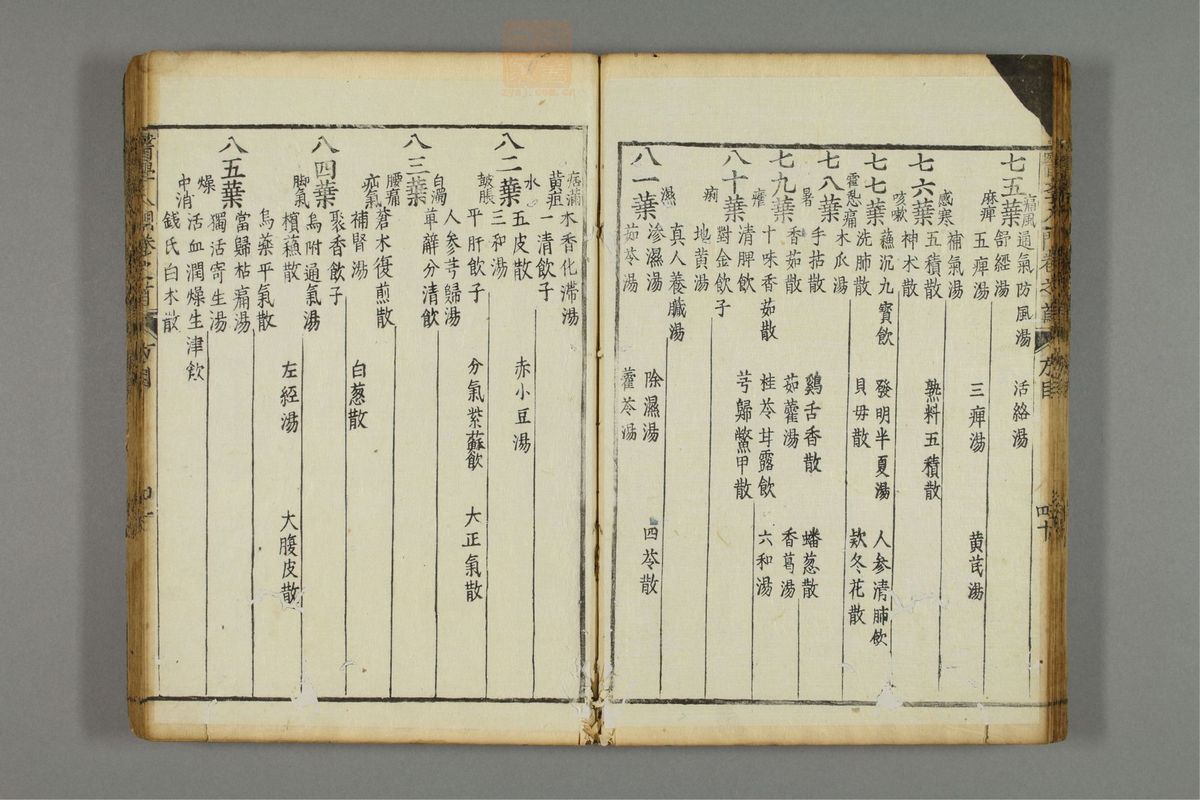 七五葉 痛風 通氣防風湯 活絡湯
舒經湯
麻痺 五痺湯 三痺湯 黄芪湯
補氣湯
七六葉 感寒 五積散 熟料五積散
神术散
七七葉 咳嗽 蘓沉九寳飲 發明半夏湯 人參清肺飲
洗肺散 貝母散 欵冬花散
霍亂 心痛 木瓜湯
七八葉 手拈散 鷄舌香散 蟠葱散
暑 香茹散 茹藿湯 香葛湯
七九葉 十味香茹散 桂苓甘露飲 六和湯
瘧 清脾飲 芎歸鱉甲散
八十葉 對金飲子
痢 地黄湯
真人養臟湯
八一葉 濕 滲濕湯 除濕湯 四苓散
茹苓湯 藿苓湯
四十
痞滿 木香化滯湯
黄疸 一清飲子
水 五皮散 赤小豆湯
八二葉 三和湯
鼓脹 平肝飲子 分氣紫蘇飲 大正氣散
人參芎歸湯
白濁 萆薢分清飲
八三葉 腰痛 蒼木復煎散
補腎湯 白葱散
疝氣 聚香飲子
八四葉 烏附通氣湯
脚氣 檳蘓散 左經湯 大腹皮散
烏藥平氣散
當歸拈痛湯
八五葉 獨活寄生湯
燥 活血潤燥生津飲
中消 錢氏白木散